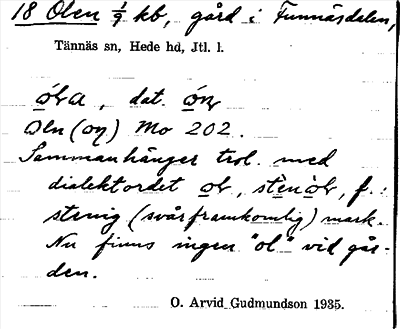 18 Olen 1/9 kb, gård i Funnäsdalen,
Tännäs sn, Hede hd, Jtl. l.
dat.
Oln (oη) Mo 202.
Sammanhänger trol. med
dialektordet f.
stenig (svårframkomlig) mark.
Nu finns ingen "ol" vid går-
den.
O. Arvid Gudmundson 1935.